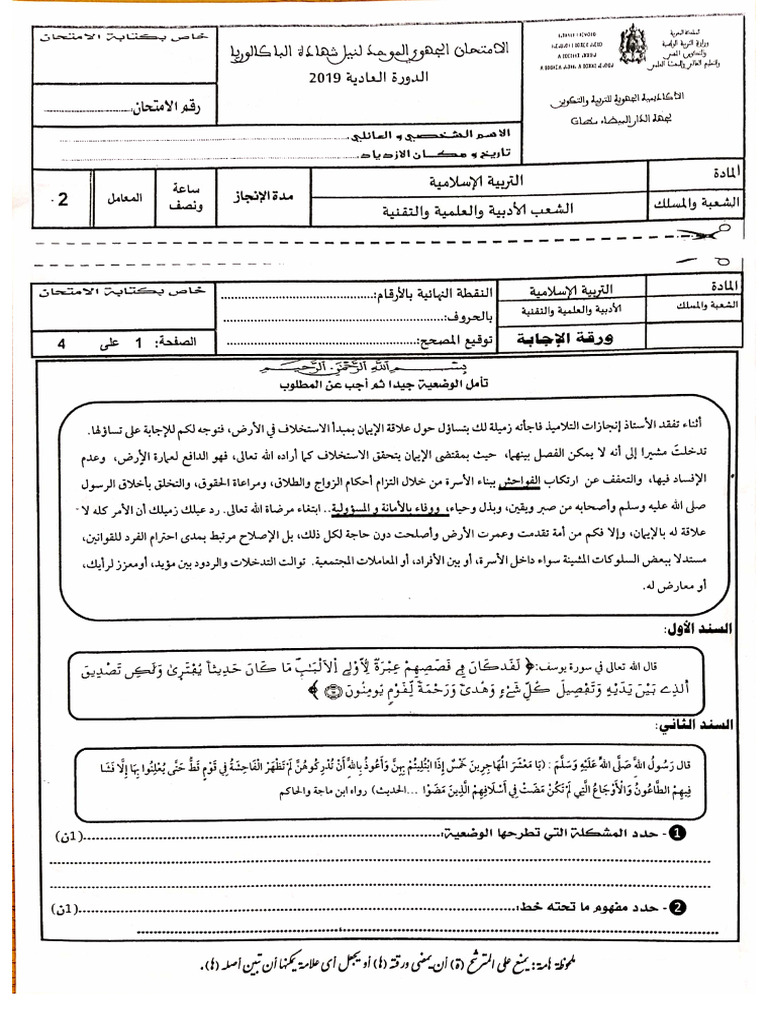 خاص بكتابة الامتحان
الامتحان الجهوي الموحد لنيل شهادة الباكالوريا
الدورة العادية 2019
رقم الامتحان:
المملكة المغربية
وزارة التربية الوطنية
والتكوين المهني
والتعليم العالي والبحث العلمي
الأكاديمية الجهوية للتربية والتكوين
لجهة الدار البيضاء سطات
الاسم الشخصي و العائلي:
تاريخ و مكان الازدياد:
المادة
التربية الإسلامية
مدة الإنجاز
ساعة ونصف
المعامل
2
الشعبة والمسلك
الشعب الأدبية والعلمية والتقنية
المادة
التربية الإسلامية
النقطة النهائية بالأرقام:
خاص بكتابة الامتحان
الشعبة والمسلك
الأدبية والعلمية والتقنية
بالحروف:
ورقة الإجابة
توقيع المصحح:
الصفحة: 1 على 4
بسم الله الرحمن الرحيم
تأمل الوضعية جيدا ثم أجب عن المطلوب
أثناء تفقد الأستاذ إنجازات التلاميذ فاجأته زميلة لك بتساؤل حول علاقة الإيمان بمبدأ الاستخلاف في الأرض، فتوجه لكم للإجابة على تساؤلها.
تدخلتَ مشيرا إلى أنه لا يمكن الفصل بينهما، حيث بمقتضى الإيمان يتحقق الاستخلاف كما أراده الله تعالى، فهو الدافع لعمارة الأرض، وعدم
الإفساد فيها، والتعفف عن ارتكاب الفواحش ببناء الأسرة من خلال التزام أحكام الزواج والطلاق، ومراعاة الحقوق، والتخلق بأخلاق الرسول
صلى الله عليه وسلم وأصحابه من صبر ويقين، وبذل وحياء، ووفاء بالأمانة و المسؤولية.. ابتغاء مرضاة الله تعالى. رد عيلك زميلك أن الأمر كله لا
علاقة له بالإيمان، وإلا فكم من أمة تقدمت وعمرت الأرض وأصلحت دون حاجة لكل ذلك، بل الإصلاح مرتبط بمدى احترام الفرد للقوانين،
مستدلا ببعض السلوكات المشينة سواء داخل الأسرة، أو بين الأفراد، أو المعاملات المجتمعية. توالت التدخلات والردود بين مؤيد، أومعزز لرأيك،
أو معارض له.
السند الأول:
قال الله تعالى في سورة يوسف:﴿ لَقَدْ كَانَ فِي قَصَصِهِمْ عِبْرَةٌ لِّأُوْلِي اِلَالْبَٰبِ مَا كَانَ حَدِيثاً يُفْتَرَىٰ وَلَٰكِن تَصْدِيقَ
اَلذِي بَيْنَ يَدَيْهِ وَتَفْصِيلَ كُلِّ شَےْءٍ وَهُدىً وَرَحْمَةً لِّقَوْمٍ يُومِنُونَ ﴾
السند الثاني:
قال رَسُولُ اللهِ صَلَّى اللهُ عَلَيْهِ وَسَلَّمَ : (يَا مَعْشَرَ الْمُهَاجِرِينَ خَمْسٌ إِذَا ابْتُلِيتُمْ بِهِنَّ وَأَعُوذُ بِاللهِ أَنْ تُدْرِكُوهُنَّ لَمْ تَظْهَرِ الْفَاحِشَةُ فِي قَوْمٍ قَطُّ حَتَّى يُعْلِنُوا بِهَا إِلَّا فَشَا
فِيهِمُ الطَّاعُونُ وَالْأَوْجَاعُ الَّتِي لَمْ تَكُنْ مَضَتْ فِي أَسْلَافِهِمُ الَّذِينَ مَضَوْا ...الحديث) رواه ابن ماجة والحاكم
1- حدد المشكلة التي تطرحها الوضعية:(1ن)
2- حدد مفهوم ما تحته خط:(1ن)
ملحوظة هامة: يمنع على المترشح (ة) أن يمضي ورقته (ها) أو يجعل أي علامة يمكنها أن تبين أصله (ها).